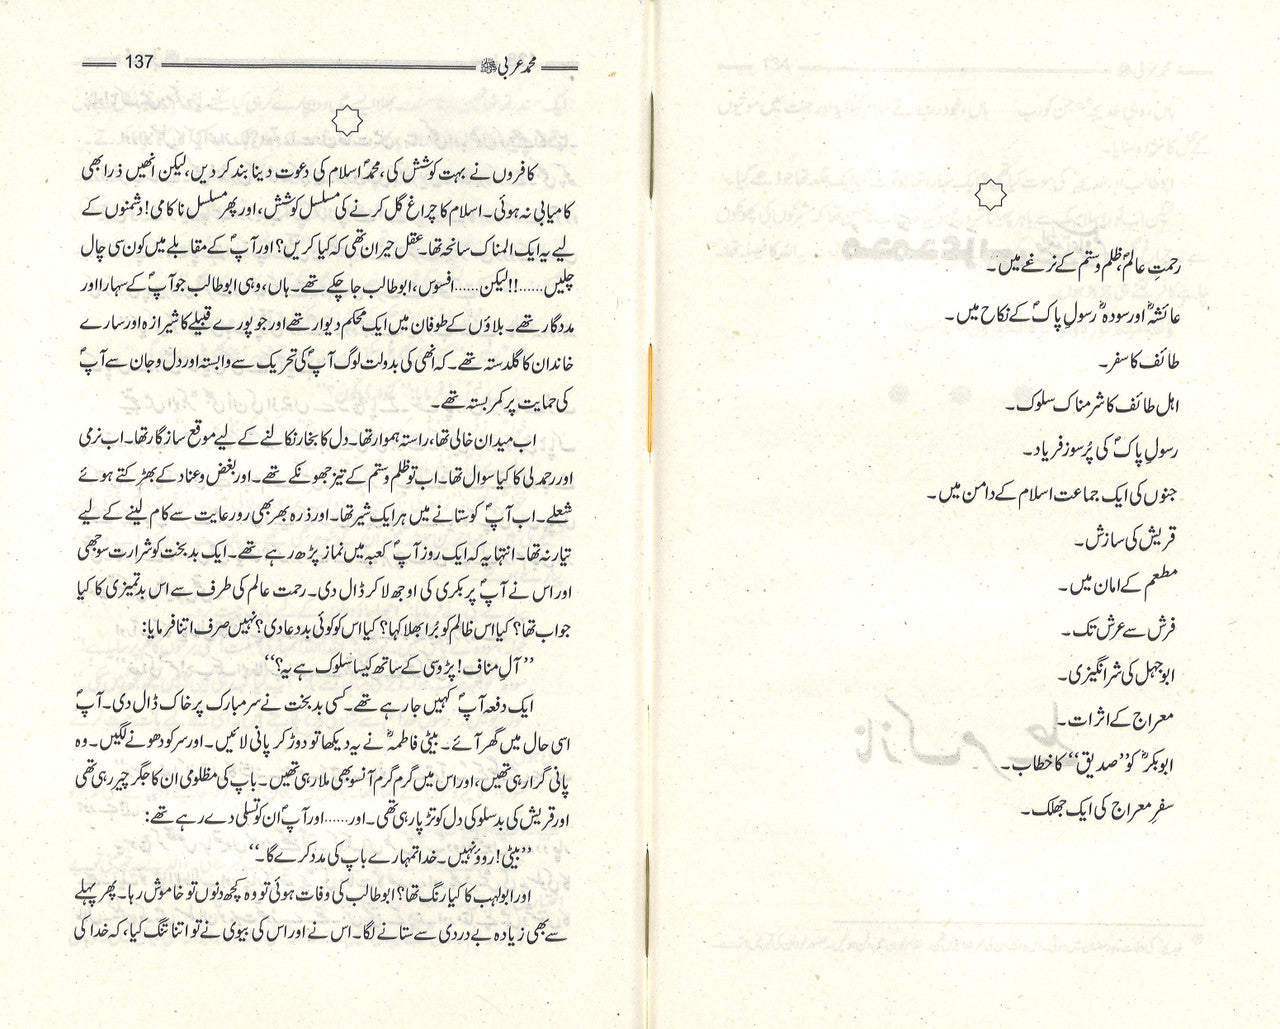 رحمتِ عالمؐ، ظلم وستم کے نرغے میں۔
عائشہؓ اور سودہؓ رسولِ پاکؐ کے نکاح میں۔
طائف کا سفر۔
اہل طائف کا شرمناک سلوک۔
رسولِ پاکؐ کی پُرسوز فریاد۔
جنوں کی ایک جماعت اسلام کے دامن میں۔
قریش کی سازش۔
مطعم کے امان میں۔
فرش سے عرش تک۔
ابوجہل کی شرانگیزی۔
معراج کے اثرات۔
ابوبکرؓ کو ’صدیق‘‘ کا خطاب۔
سفرِ معراج کی ایک جھلک۔
محمد عربی ﷺ 137
کافروں نے بہت کوشش کی، محمدؐ اسلام کی دعوت دینا بند کر دیں، لیکن انھیں ذرا بھی
کامیابی نہ ہوئی۔ اسلام کا چراغ گل کرنے کی مسلسل کوشش، اور پھر مسلسل ناکامی! دشمنوں کے
لیے یہ ایک المناک سانحہ تھا۔ عقل حیران تھی کہ کیا کریں؟ اور آپؐ کے مقابلے میں کون سی چال
چلیں......!! لیکن...... افسوس، ابوطالب جا چکے تھے۔ ہاں، وہی ابوطالب جو آپؐ کے سہارا اور
مددگار تھے۔ بلاؤں کے طوفان میں ایک محکم دیوار تھے اور جو پورے قبیلے کا شیرازہ اور سارے
خاندان کا گلدستہ تھے۔ کہ انھی کی بدولت لوگ آپؐ کی تحریک سے وابستہ اور دل و جان سے آپؐ
کی حمایت پر کمربستہ تھے۔
اب میدان خالی تھا، راستہ ہموار تھا۔ دل کا بخار نکالنے کے لیے موقع سازگار تھا۔ اب نرمی
اور رحمدلی کا کیا سوال تھا۔ اب تو ظلم وستم کے تیز جھونکے تھے۔ اور بغض وعناد کے بھڑکتے ہوئے
شعلے۔ اب آپؐ کو ستانے میں ہر ایک شیر تھا۔ اور ذرہ بھر بھی رورعایت سے کام لینے کے لیے
تیار نہ تھا۔ انتہا یہ کہ ایک روز آپؐ کعبہ میں نماز پڑھ رہے تھے۔ ایک بدبخت کو شرارت سوجھی
اور اس نے آپؐ پر بکری کی اوجھ لا کر ڈال دی۔ رحمت عالم کی طرف سے اس بدتمیزی کا کیا
جواب تھا؟ کیا اس ظالم کو بُرا بھلا کہا؟ کیا اس کو کوئی بددعا دی؟ نہیں صرف اتنا فرمایا:
’’آلِ مناف! پڑوسی کے ساتھ کیسا سلوک ہے یہ؟‘‘
ایک دفعہ آپؐ کہیں جا رہے تھے۔ کسی بدبخت نے سر مبارک پر خاک ڈال دی۔ آپؐ
اسی حال میں گھر آئے۔ بیٹی فاطمہؓ نے یہ دیکھا تو دوڑ کر پانی لائیں۔ اور سر کو دھونے لگیں۔ وہ
پانی گرا رہی تھیں، اور اس میں گرم گرم آنسو بھی ملا رہی تھیں۔ باپ کی مظلومی ان کا جگر چیر رہی تھی
اور قریش کی بدسلوکی دل کو تڑپا رہی تھی۔ اور...... اور آپؐ ان کو تسلی دے رہے تھے:
’’بیٹی! روؤ نہیں۔ خدا تمہارے باپ کی مدد کرے گا۔‘‘
اور ابولہب کا کیا رنگ تھا؟ ابوطالب کی وفات ہوئی تو وہ کچھ دنوں تو خاموش رہا۔ پھر پہلے
سے بھی زیادہ بے دردی سے ستانے لگا۔ اس نے اور اس کی بیوی نے تو اتنا تنگ کیا، کہ خدا کی